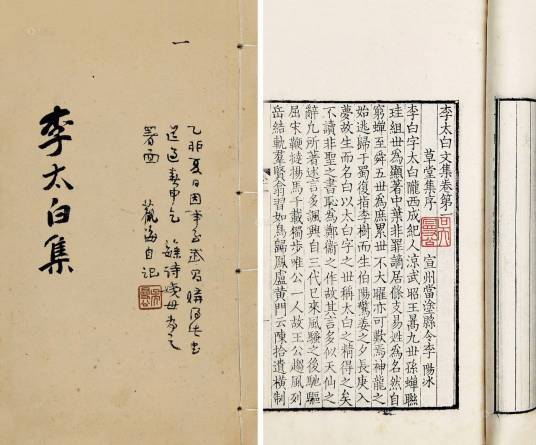 一
李太白集
自記
李太白文集卷第一
草堂集序
宣州當塗縣令李陽冰
李白字太白隴西成紀人涼武昭王暠九世孫蟬聯
珪組世為顯著中葉非罪謫居條支易姓為名然自
窮蟬至舜五世為庶累世不大曜亦可歎焉神龍之
始逃歸于蜀復指李樹而生伯陽驚姜之夕長庚入
夢故生而名白以太白字之世稱太白之精得之矣
不讀非聖之書恥為鄭衞之作故其言多似天仙之
辭凡所著述言多諷興自三代已來風騷之後馳驅
屈宋鞭撻揚馬千載獨步唯公一人故王公趨風列
岳結軌羣賢翕習如鳥歸鳳盧黃門云陳拾遺橫制